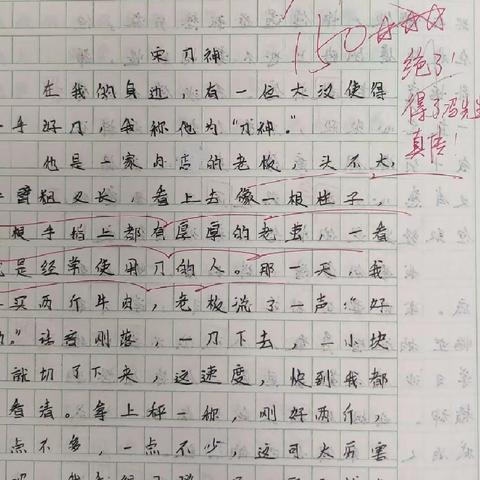 150
绝了！
得了冯先生
真传！
宋刀神
在我的身边，有一位大汉使得
一手好刀，我称他为"刀神。"
他是一家肉店的老板，头不大，
手臂粗又长，看上去像一根柱子，
根手指上都有厚厚的老茧，一看
就是经常使用刀的人。那一天，我
买两斤牛肉，老板说了一声："好
"话音刚落，一刀下去，一小块
就切了下来，这速度，快到我都
看清。拿上秤一称，刚好两斤，
点不多，一点不少，这可太厉害